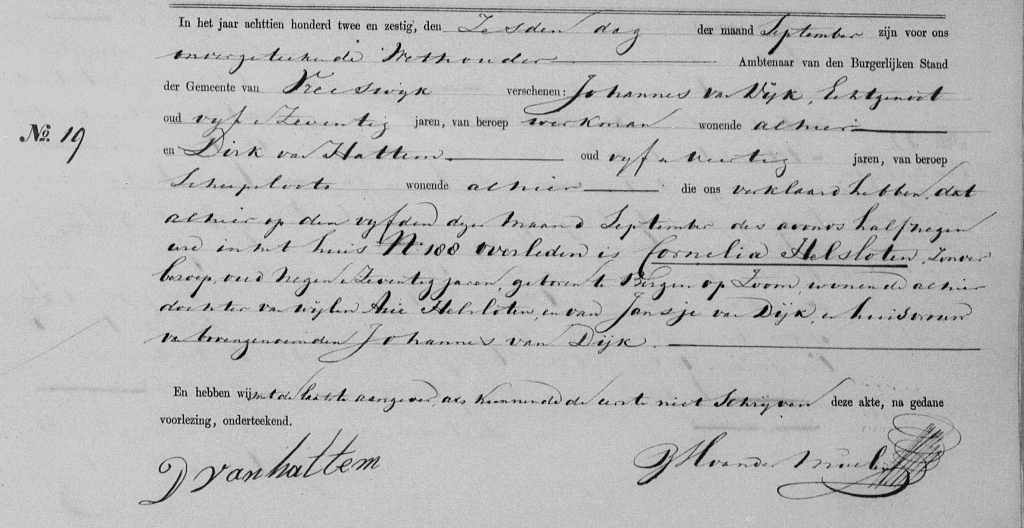 In het jaar achttien honderd twee en zestig, den Zesden dag der maand September zijn voor ons
onvergeteekende Wethouder Ambtenaar van den Burgerlijken Stand
der Gemeente van Vreeswyk verschenen: Johannes van Dijk, Echtgenoot
oud vyf & Zeventig jaren, van beroep werkman wonende alhier
No. 19
en Dirk van Hattem oud vyf & veertig jaren, van beroep
Scheploots wonende alhier die ons verklaard hebben, dat
alhier op den vyfden dezer maand September des avonds half negen
ure in het huis No 188 overleden is Cornelia Helsloten, Zonder
beroep, oud Negen & Zeventig jaren, geboren te Bergen op Zoom, wonende alhier
dochter van wijlen Arie Helsloten, en van Jansje van Dijk, en huisvrouw
van bovengenoemden Johannes van Dijk.
En hebben wij met de laatste aangever, als kunnende de eerste niet Schryven deze akte, na gedane
voorlezing, onderteekend.
D van hattem